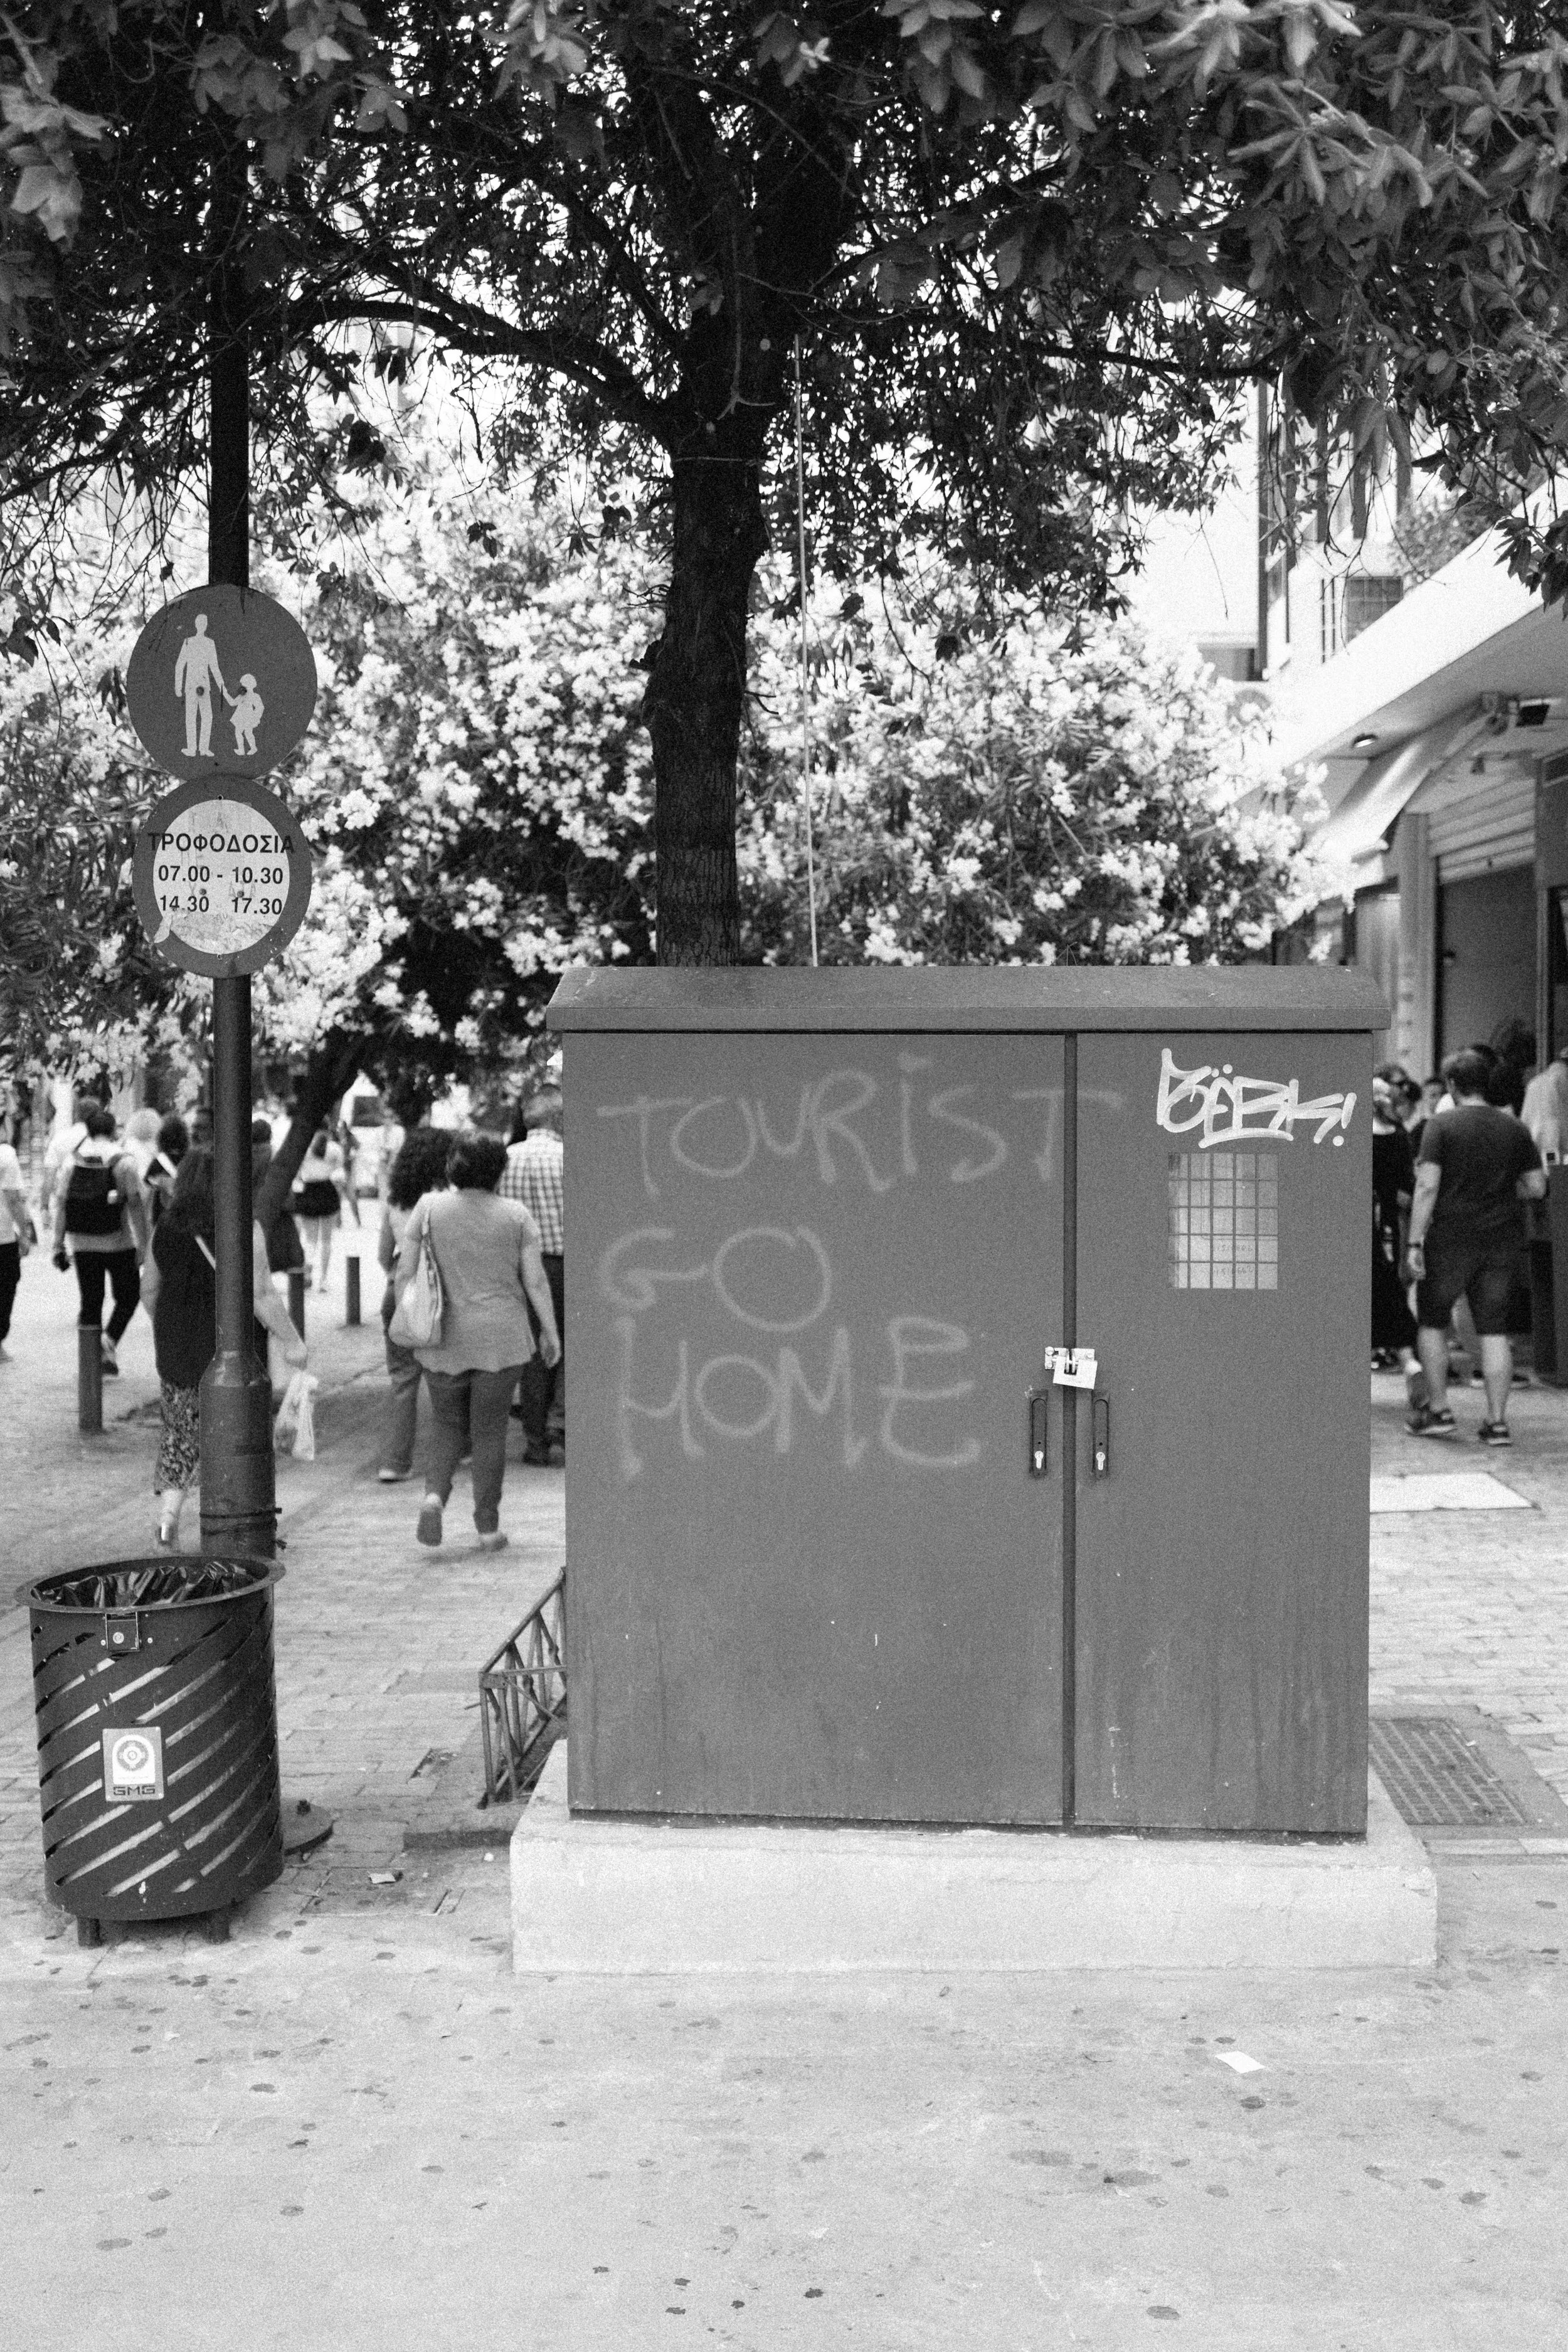 ΤΡΟΦΟΔΟΣΙΑ
07.00 - 10.30
14.30 17.30
TOURIST
GO
HOME
GMG